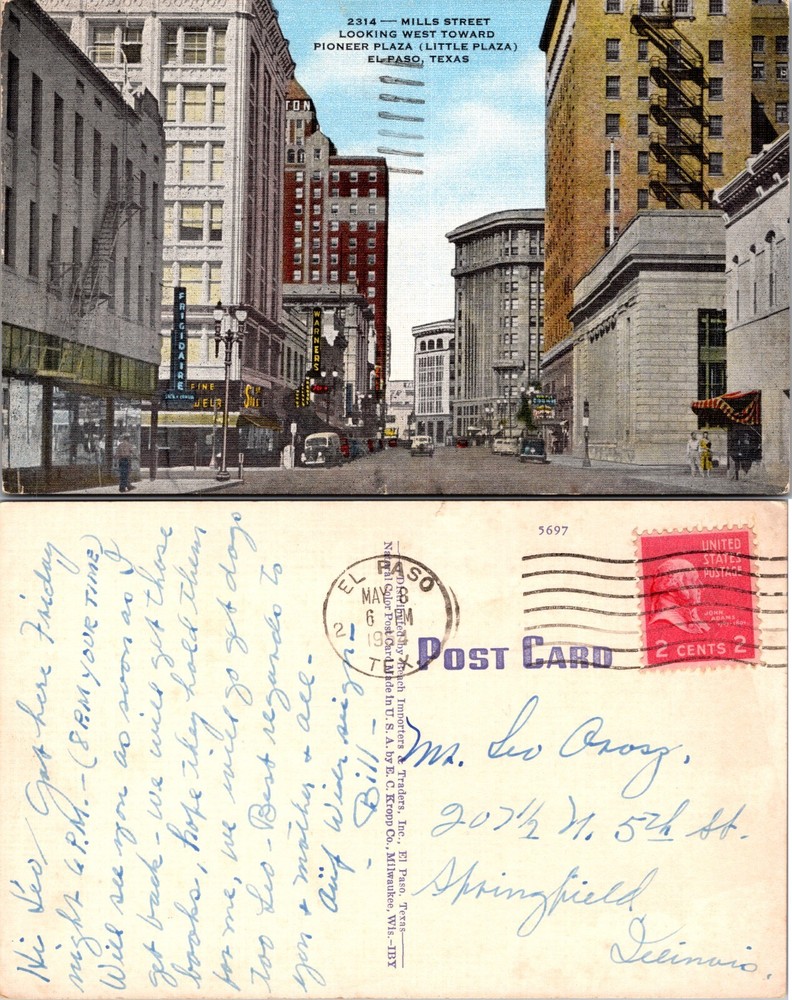 2314 — MILLS STREET
LOOKING WEST TOWARD
PIONEER PLAZA (LITTLE PLAZA)
EL PASO, TEXAS
TON
FRIGIDAIRE
WARNERS
FINE
5697
UNITED
STATES
POSTAGE
JOHN
ADAMS
2 CENTS 2
EL PASO
MAY 8
6 PM
TEX
POST CARD
Distributed by Beach Importers & Traders, Inc., El Paso, Texas
Natural Color Post Card Made in U. S. A. by E. C. Kropp Co., Milwaukee, Wis.—IBY
Hi Leo, Got here Friday
night 6 P.M. — (8 P.M YOUR TIME)
Will see you as soon as I
get back — we will get those
books, hope they hold them
for me, we will go get dogs
too Leo - Best regards to
you & mother & all -
Auf Wiedersign -
- Bill -
Mr. Leo Orosz,
207½ N. 5th St.
Springfield
Illinois.